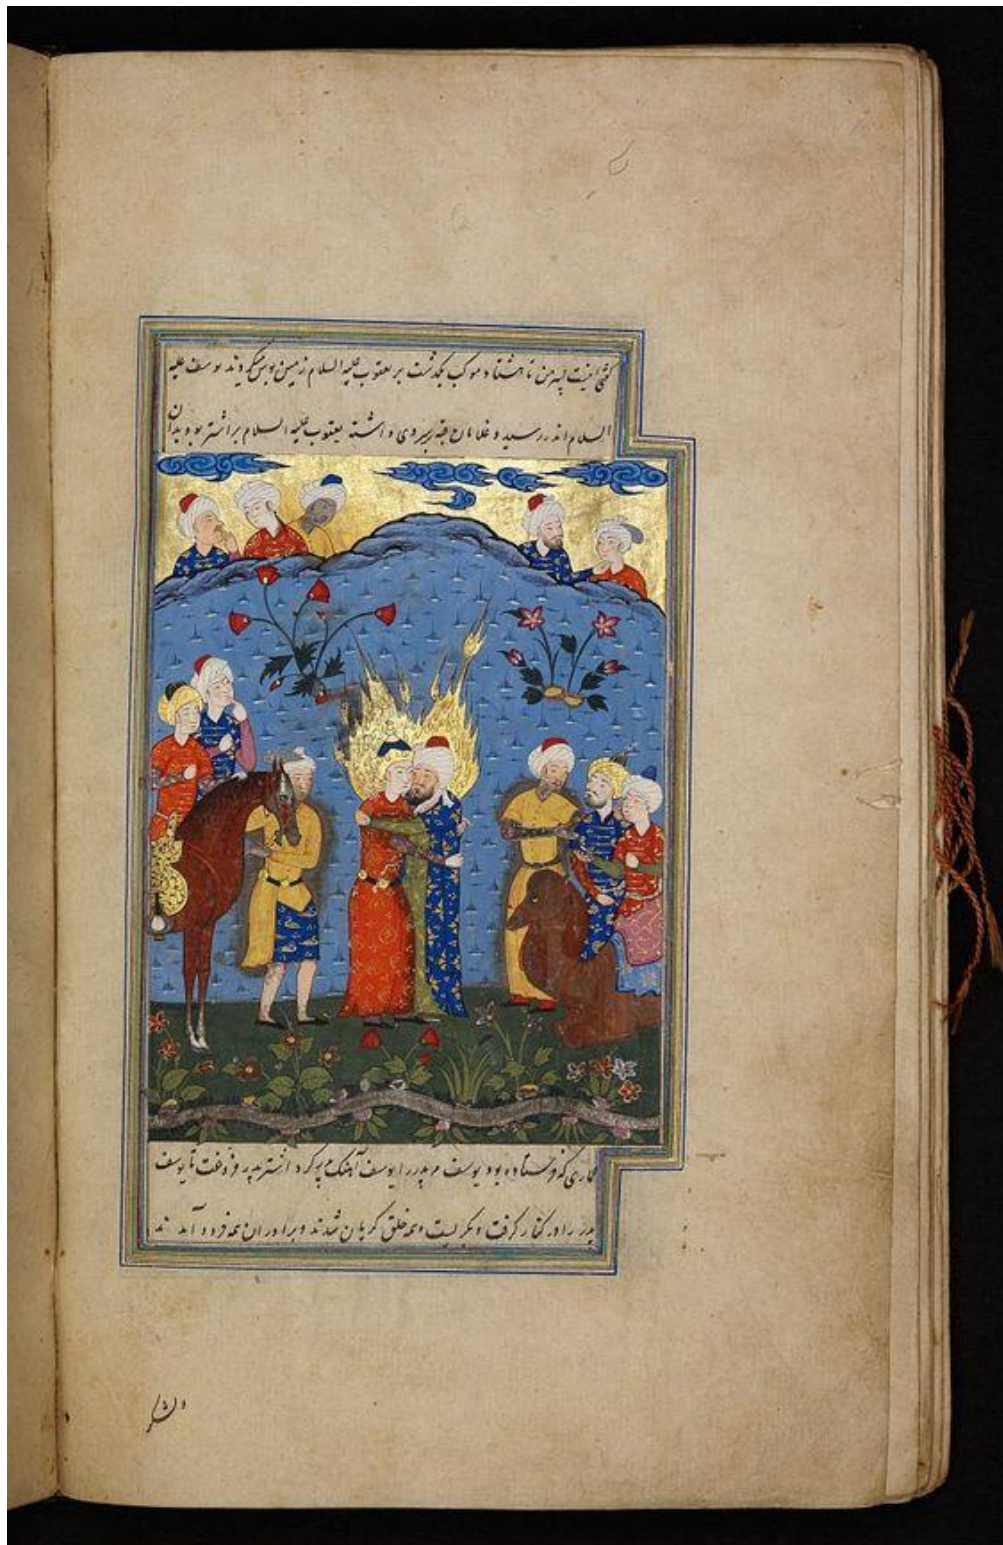 گفتی اینست پسر من تا هشتاد موکب بگذشت بر یعقوب علیه السلام زمین بوس میکردند یوسف علیه
السلام اندر رسید و غلامان بر وی داشته یعقوب علیه السلام بر اشتر بود بدان
عماری که فرستاده بود یوسف مر پدر را یوسف آهنک پدر کرد اشتر پدر فروخفت تا یوسف
پدر را در کنار کرفت و بکریست و همه خلق کریان شدند و برادران همه فرود آمدند